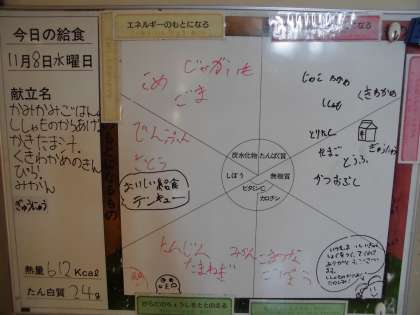 今日の給食
11月8日水曜日
献立名
かみかみごはん
ししゃものからあげ
かきたま汁
くきわかめのきん
ぴら
みかん
ぎゅうにゅう
熱量 612 Kcal
たん白質 24g
エネルギーのもとになる
になる
こめ じゃがいも
ごま
でんぷん
さとう
おいしい給食
テンキュー
じゃこ
くきわかめ
ししゃも
とりにく
たまご
とうふ
ぎゅうにゅう
かつおぶし
炭水化物
たんぱく質
しぼう
無機質
ビタミンC
カロチン
にんじん みかん こまつな
たまねぎ ごぼう
いつもおいしい
からだのちょうしをととのえる